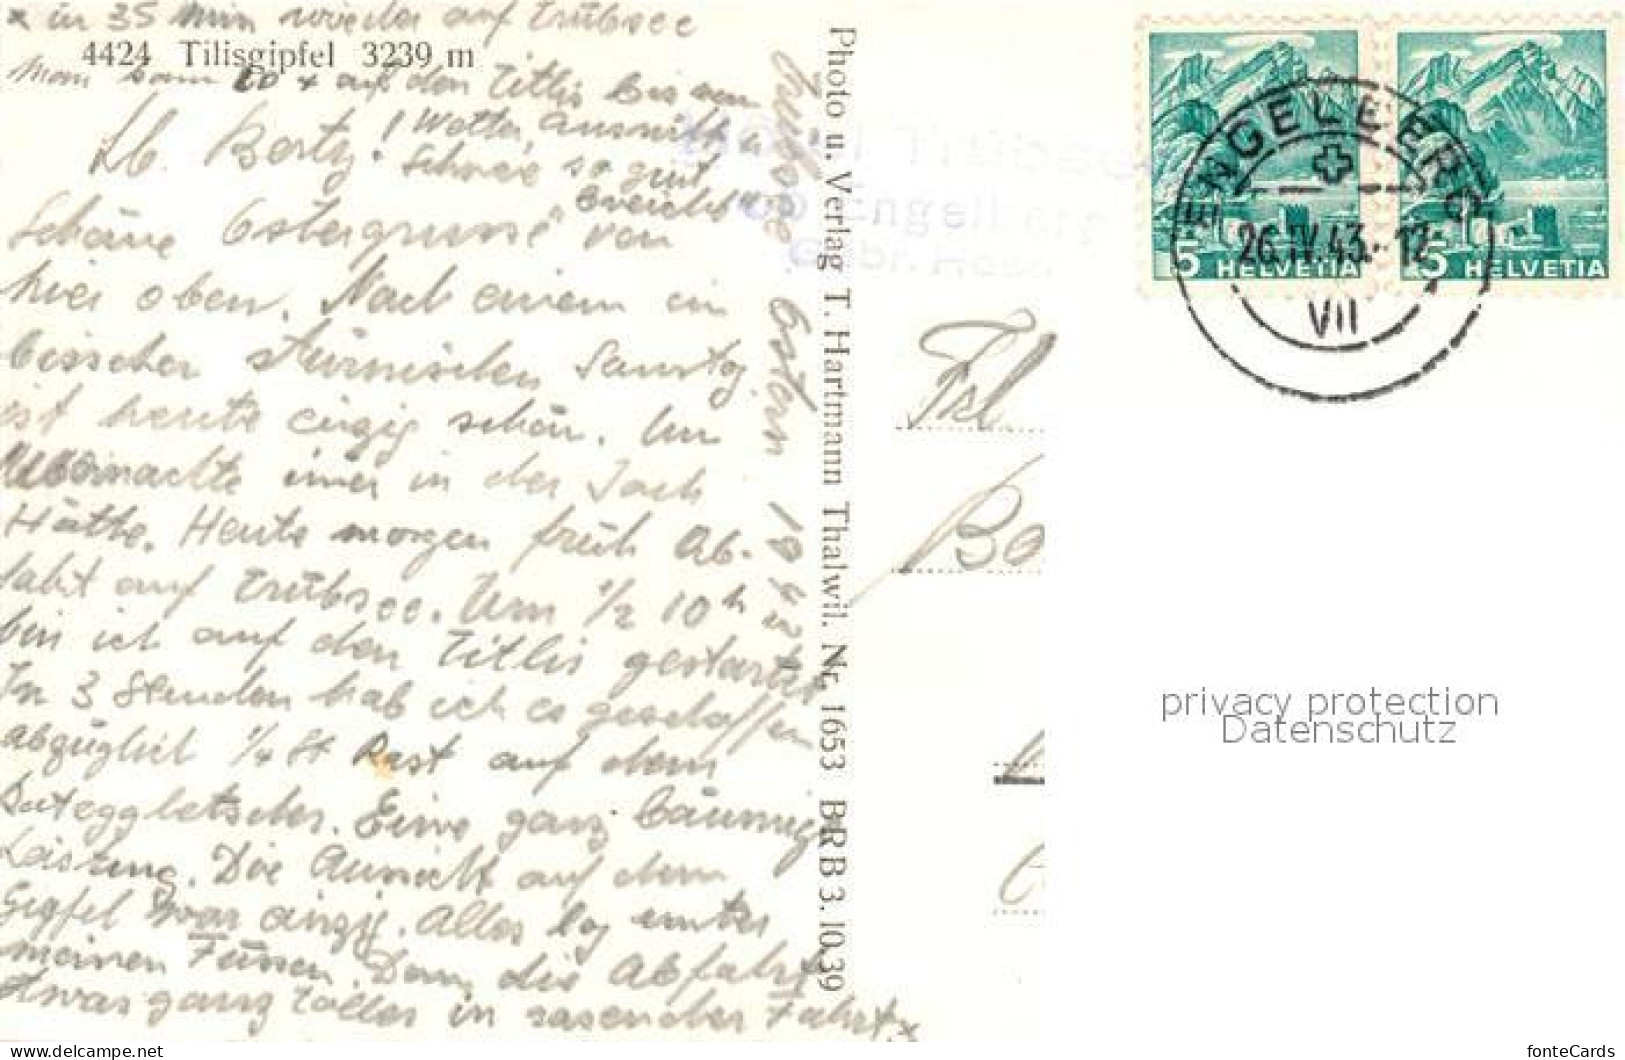 x in 35 Min wieder auf Trübsee
4424 Titlisgipfel 3239 m
Man kann 60 x auf den Titlis bis man
! Wetter, Aussicht u
Lb. Berty!
Schnee so gut
erreicht
Schöne Ostergrüsse von
hier oben. Nach einem ein
bisschen stürmischen Samstag
ist heute einzig schön. Im
Übernachte immer in der Joch
Hütte. Heute morgen früh Ab-
fahrt auf Trübsee. Um 1/2 10 h
bin ich auf den Titlis gestartet
In 3 Stunden hab ich es geschaffen
abzüglich 1/4 St Rast auf dem
Rotegggletscher. Eine ganz bäumige
Leistung. Die Aussicht auf dem
Gipfel war einzig. Alles lag unter
meinen Füssen. Dann die Abfahrt
etwas ganz tolles in rasender Fahrt. x
Trübsee Ostern 1943
Photo u. Verlag T. Hartmann Thalwil. Nr. 1653 BRB 3.10.39
Hotel Trübsee
ob Engelberg
Gebr. Hess
5 HELVETIA
5 HELVETIA
ENGELBERG
26.IV.43.-12
VII
Frl.
privacy protection
Datenschutz
www.delcampe.net
fonteCards